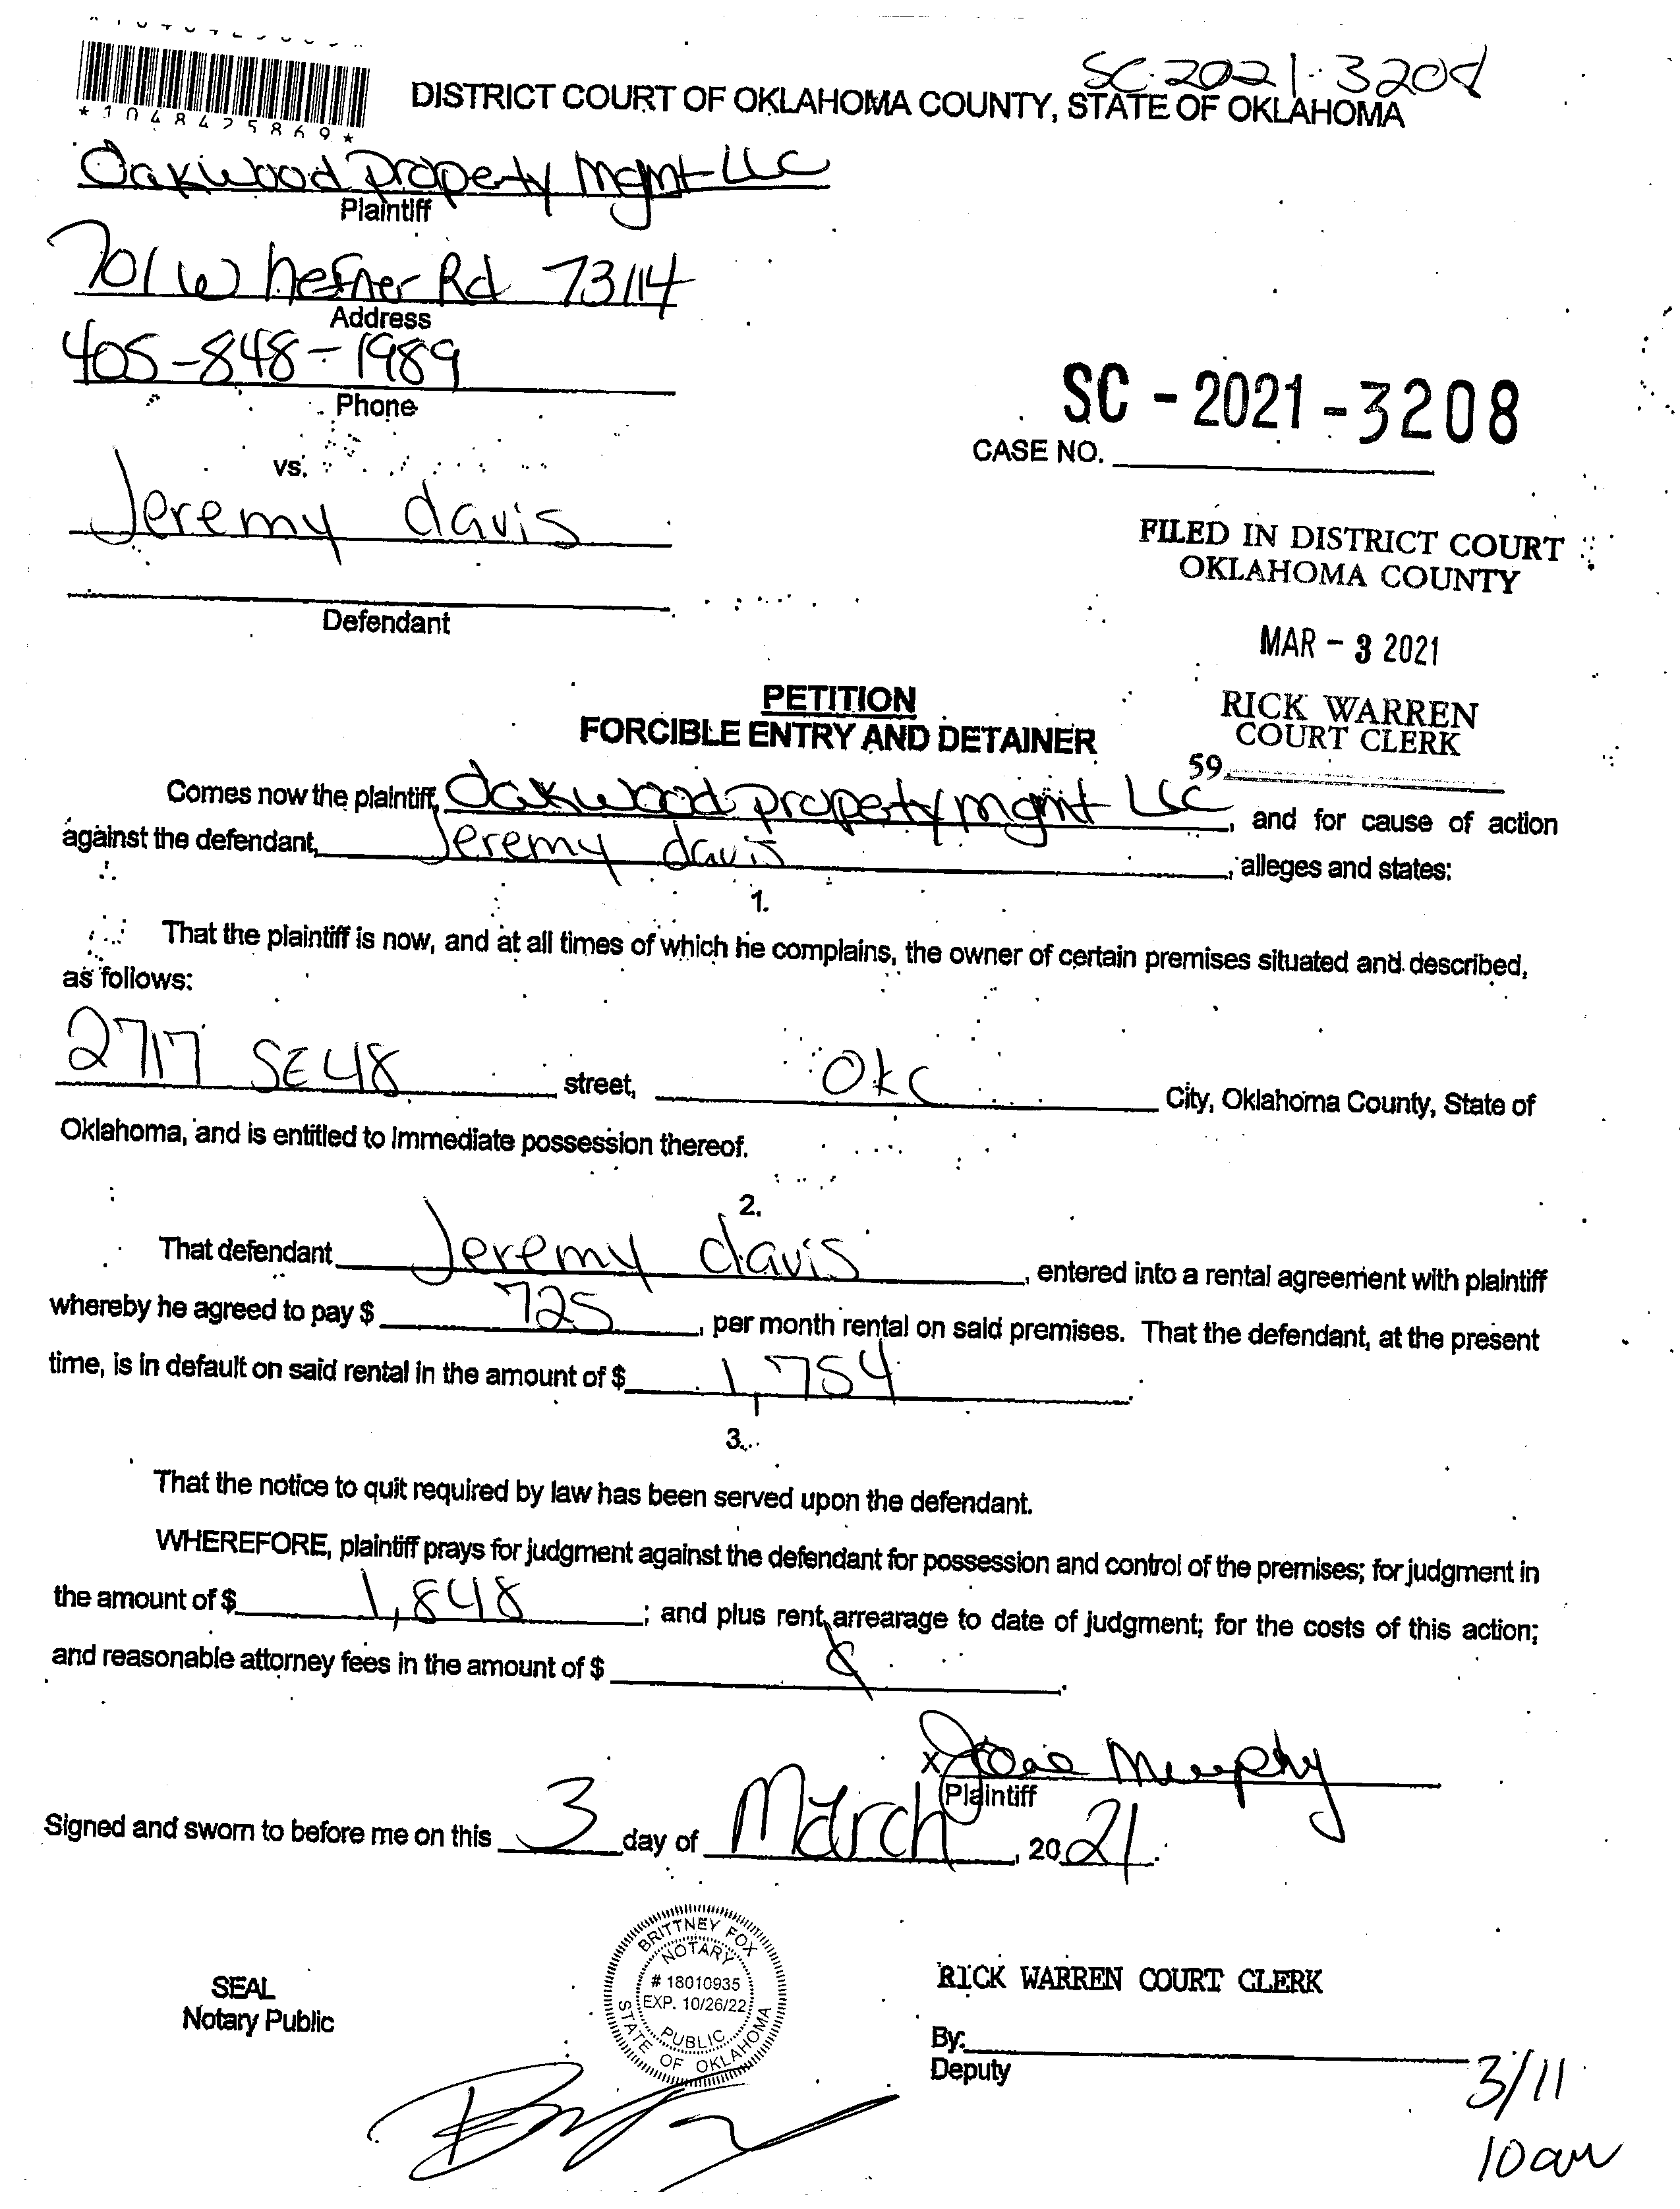 SC-2021-3208
*1048425869*
DISTRICT COURT OF OKLAHOMA COUNTY, STATE OF OKLAHOMA
Oakwood Property Mgmt LLC
Plaintiff
701 W hefner Rd 73114
Address
405-848-1989
Phone
SC - 2021 - 3208
CASE NO.
vs.
Jeremy davis
Defendant
FILED IN DISTRICT COURT
OKLAHOMA COUNTY
MAR - 3 2021
RICK WARREN
COURT CLERK
59
PETITION
FORCIBLE ENTRY AND DETAINER
Comes now the plaintiff, Oakwood property mgmt LLC, and for cause of action
against the defendant, Jeremy davis, alleges and states:
1.
That the plaintiff is now, and at all times of which he complains, the owner of certain premises situated and described,
as follows:
2717 SE 48 street, OKC City, Oklahoma County, State of
Oklahoma, and is entitled to immediate possession thereof.
2.
That defendant Jeremy davis, entered into a rental agreement with plaintiff
whereby he agreed to pay $ 725, per month rental on said premises. That the defendant, at the present
time, is in default on said rental in the amount of $ 1,754.
3.
That the notice to quit required by law has been served upon the defendant.
WHEREFORE, plaintiff prays for judgment against the defendant for possession and control of the premises; for judgment in
the amount of $ 1,848; and plus rent arrearage to date of judgment; for the costs of this action;
and reasonable attorney fees in the amount of $
x Murphy
Plaintiff
Signed and sworn to before me on this 3 day of March, 2021.
BRITTNEY FOX
NOTARY
# 18010935
EXP. 10/26/22
PUBLIC
STATE OF OKLAHOMA
SEAL
Notary Public
RICK WARREN COURT CLERK
By:
Deputy
3/11
10am